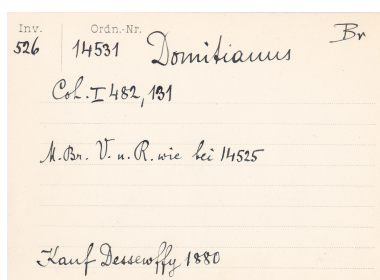 Inv. Ordn.-Nr. Br
526 14531 Domitianus
Coh. I 482, 131
M. Br. V. u. R. wie bei 14525
Kauf Dessewffy 1880